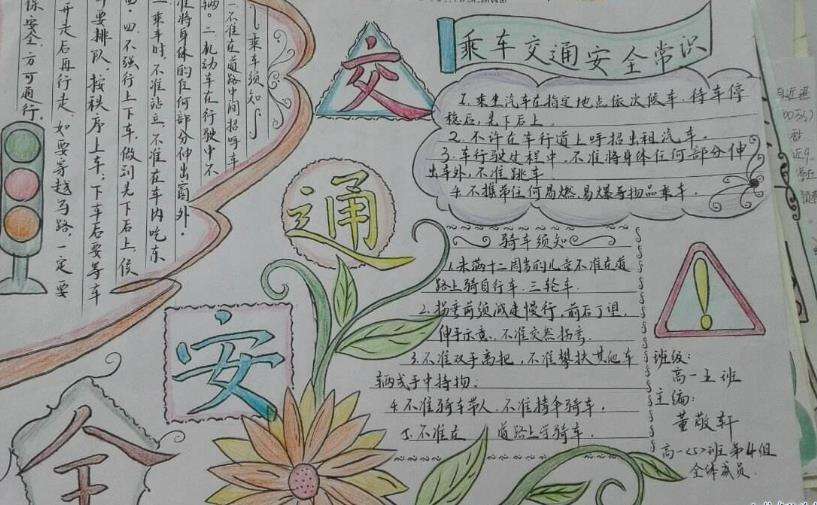 乘车交通安全常识
1.乘坐汽车在指定地点依次候车,待车停
稳后,先下后上。
2.不许在车行道上呼招出租汽车。
3.车行驶过程中,不准将身体任何部分伸
出车外,不准跳车
4.不携带任何易燃、易爆等物品乘车。
骑车须知
1.未满十二周岁的儿童不准在道
路上骑自行车、三轮车.
2.拐弯前须减速慢行,前后了望,
伸手示意,不准突然拐弯.
3.不准双手离把,不准攀扶其他车
辆或手中持物.
4.不准骑车带人,不准撑伞骑车.
5.不准在 道路上学骑车.
班级:
高一五班
主编:
董敬轩
高一<5>班第4组
全体成员
交
通
安
全
乘车须知
一.不准在道路中间招呼车
辆。二.机动车在行驶中不
准将身体的任何部分伸出窗外.
三.乘车时,不准站立,不准在车内吃东
西.四.不强行上下车,做到先下后上,候
车要排队,按秩序上车;下车后要等车
开走后再行走,如要穿越马路,一定要
保安全方可通行.